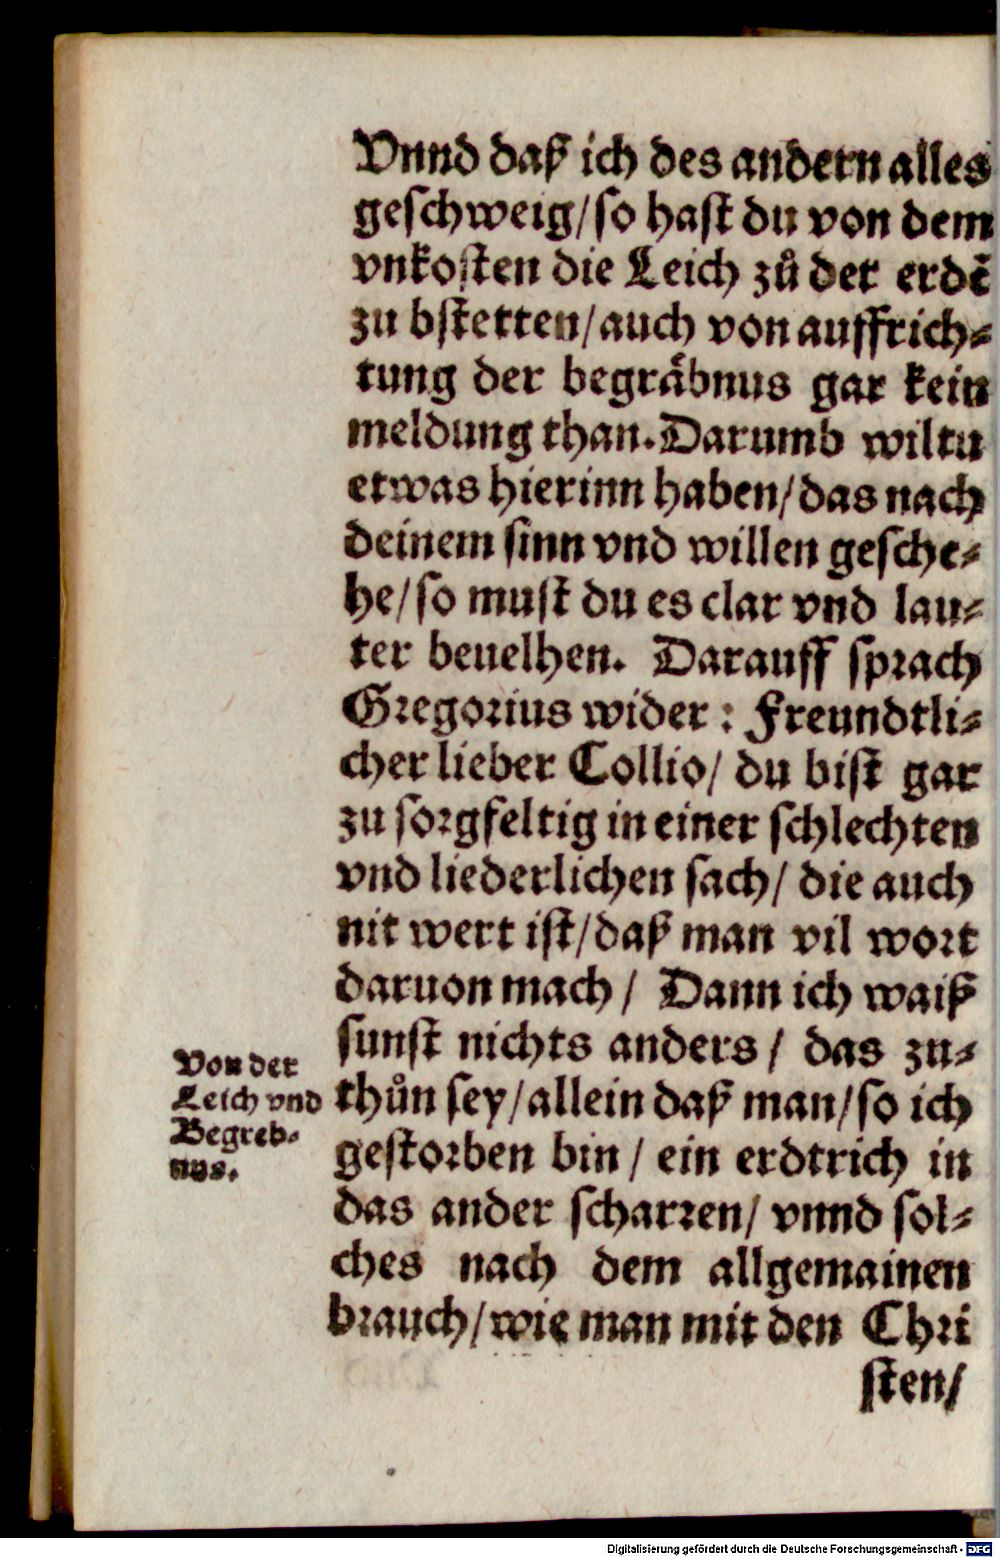 Vnnd daß ich des andern alles
geschweig/so hast du von dem
vnkosten die Leich zů der erdẽ
zu bstetten/auch von auffrich⸗
tung der begraͤbnus gar kein
meldung than. Darumb wiltu
etwas hierinn haben/das nach
deinem sinn vnd willen gesche⸗
he/so must du es clar vnd lau⸗
ter beuelhen. Darauff sprach
Gregorius wider: Freundtli⸗
cher lieber Collio/ du bist gar
zu sorgfeltig in einer schlechten
vnd liederlichen sach/ die auch
nit wert ist/daß man vil wort
daruon mach/ Dann ich waiß
sunst nichts anders/ das zu⸗
thůn sey/allein daß man/so ich
gestorben bin/ ein erdtrich in
das ander scharren/ vnnd sol⸗
ches nach dem allgemainen
brauch/wie man mit den Chri
sten/
Von der
Leich vnd
Begreb⸗
nus.
Digitalisierung gefördert durch die Deutsche Forschungsgemeinschaft - DFG